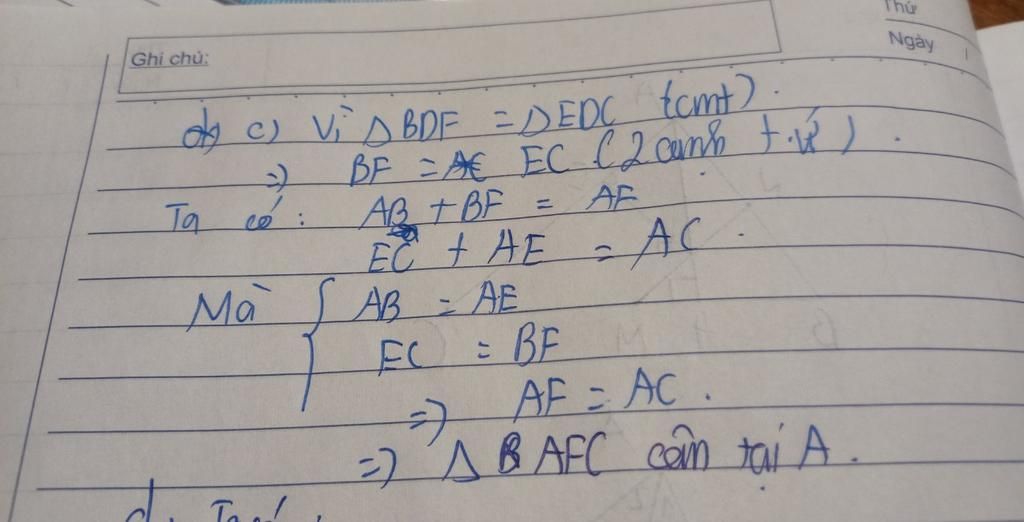 Thứ
Ngày
Ghi chú:
c) Vì △BDF = △EDC (cmt).
=> BF = EC (2 cạnh t.ứ).
Ta có: AB + BF = AF
EC + AE = AC.
Mà { AB = AE
EC = BF
=> AF = AC.
=> △ AFC cân tại A.
d, Ta có: